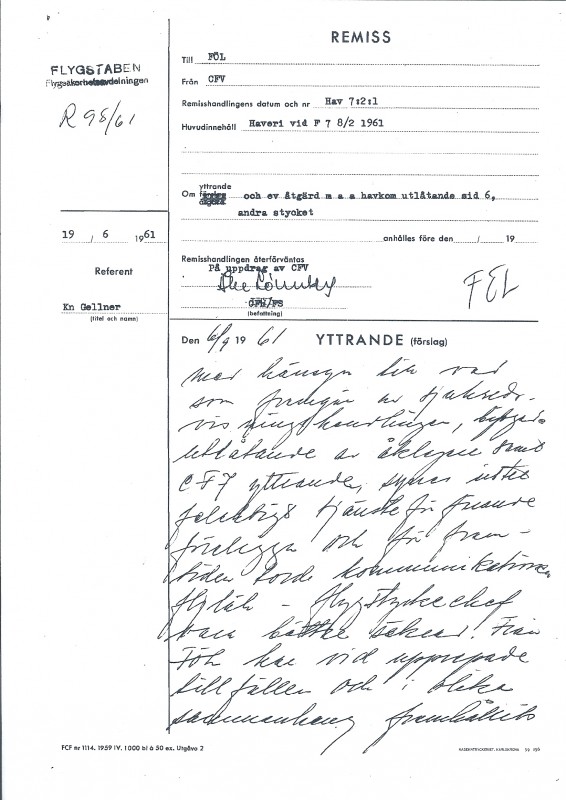 REMISS
FLYGSTABEN
Flygsäkerhetsavdelningen
R 98/61
Till FÖL
Från CFV
Remisshandlingens datum och nr Hav 7:2:1
Huvudinnehåll Haveri vid F 7 8/2 1961
yttrande
Om och ev åtgärd m a a havkom utlåtande sid 6,
andra stycket
anhålles före den / 19
19 / 6 1961
Remisshandlingen återförväntas
På uppdrag av CFV
CFH/FS
(befattning)
Referent
Kn Gellner
(titel och namn)
FÖL
Den 6/9 19 61 YTTRANDE (förslag)
med hänsyn till vad
som framgår av
handlingar,
utlåtande av åklagare samt
CF7 yttrande, synes intet
felaktigt tjänsteförfarande
föreligga och för fram-
tiden torde kommunikationen
flygläk - flygstyrkechef
vara bättre säkrad. Från
FÖL har vid upprepade
tillfällen och i olika
sammanhang framhållits
FCF nr 1114. 1959 IV. 1000 bl à 50 ex. Utgåva 2